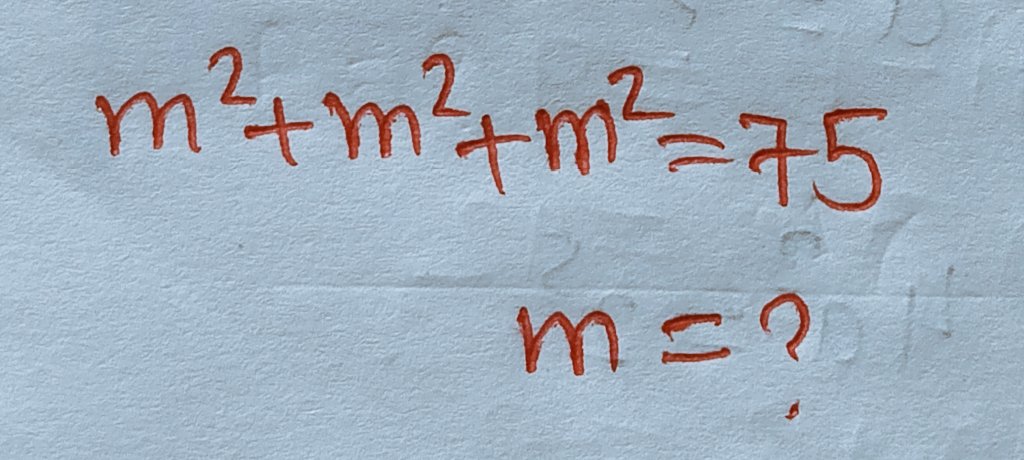 m²+m²+m²=75
m=?